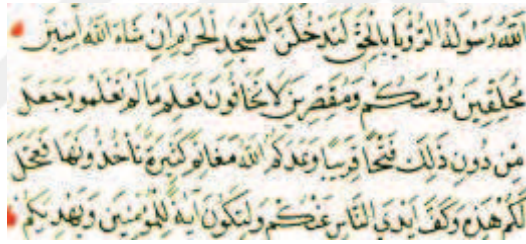 الله رسوله الرؤيا بالحق لتدخلن المسجد الحرام إن شاء الله آمنين
محلقين رؤسكم ومقصرين لا تخافون فعلم ما لم تعلموا وجعل
من دون ذلك فتحا قريبا وعدكم الله مغانم كثيرة تأخذونها فعجل
لكم هذه وكف أيدي الناس عنكم ولتكون آية للمؤمنين ويهديكم